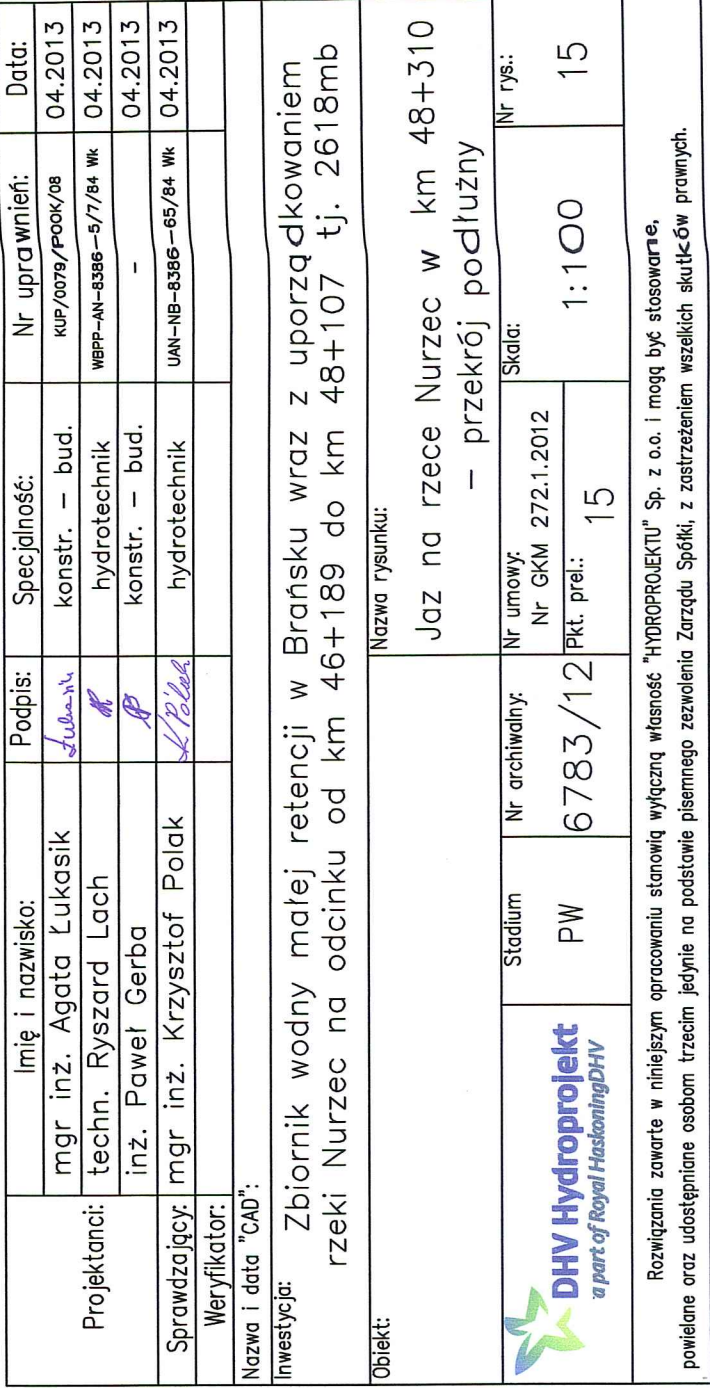 Imię i nazwisko: Podpis: Specjalność: Nr uprawnień: Data:
Projektanci: mgr inż. Agata Łukasik Łukasik konstr. – bud. KUP/0079/POOK/08 04.2013
techn. Ryszard Lach hydrotechnik WBPP-AN-8386-5/7/84 Wk 04.2013
inż. Paweł Gerba konstr. – bud. - 04.2013
Sprawdzający: mgr inż. Krzysztof Polak K Polak hydrotechnik UAN-NB-8386-65/84 Wk 04.2013
Weryfikator:
Nazwa i data "CAD":
Inwestycja: Zbiornik wodny małej retencji w Brańsku wraz z uporządkowaniem
rzeki Nurzec na odcinku od km 46+189 do km 48+107 tj. 2618mb
Obiekt:
Nazwa rysunku:
Jaz na rzece Nurzec w km 48+310
– przekrój podłużny
DHV Hydroprojekt
a part of Royal HaskoningDHV
Stadium
PW
Nr archiwalny:
6783/12
Nr umowy:
Nr GKM 272.1.2012
Pkt. prel.:
15
Skala:
1:100
Nr rys.:
15
Rozwiązania zawarte w niniejszym opracowaniu stanowią wyłączną własność "HYDROPROJEKTU" Sp. z o.o. i mogą być stosowane,
powielane oraz udostępniane osobom trzecim jedynie na podstawie pisemnego zezwolenia Zarządu Spółki, z zastrzeżeniem wszelkich skutków prawnych.